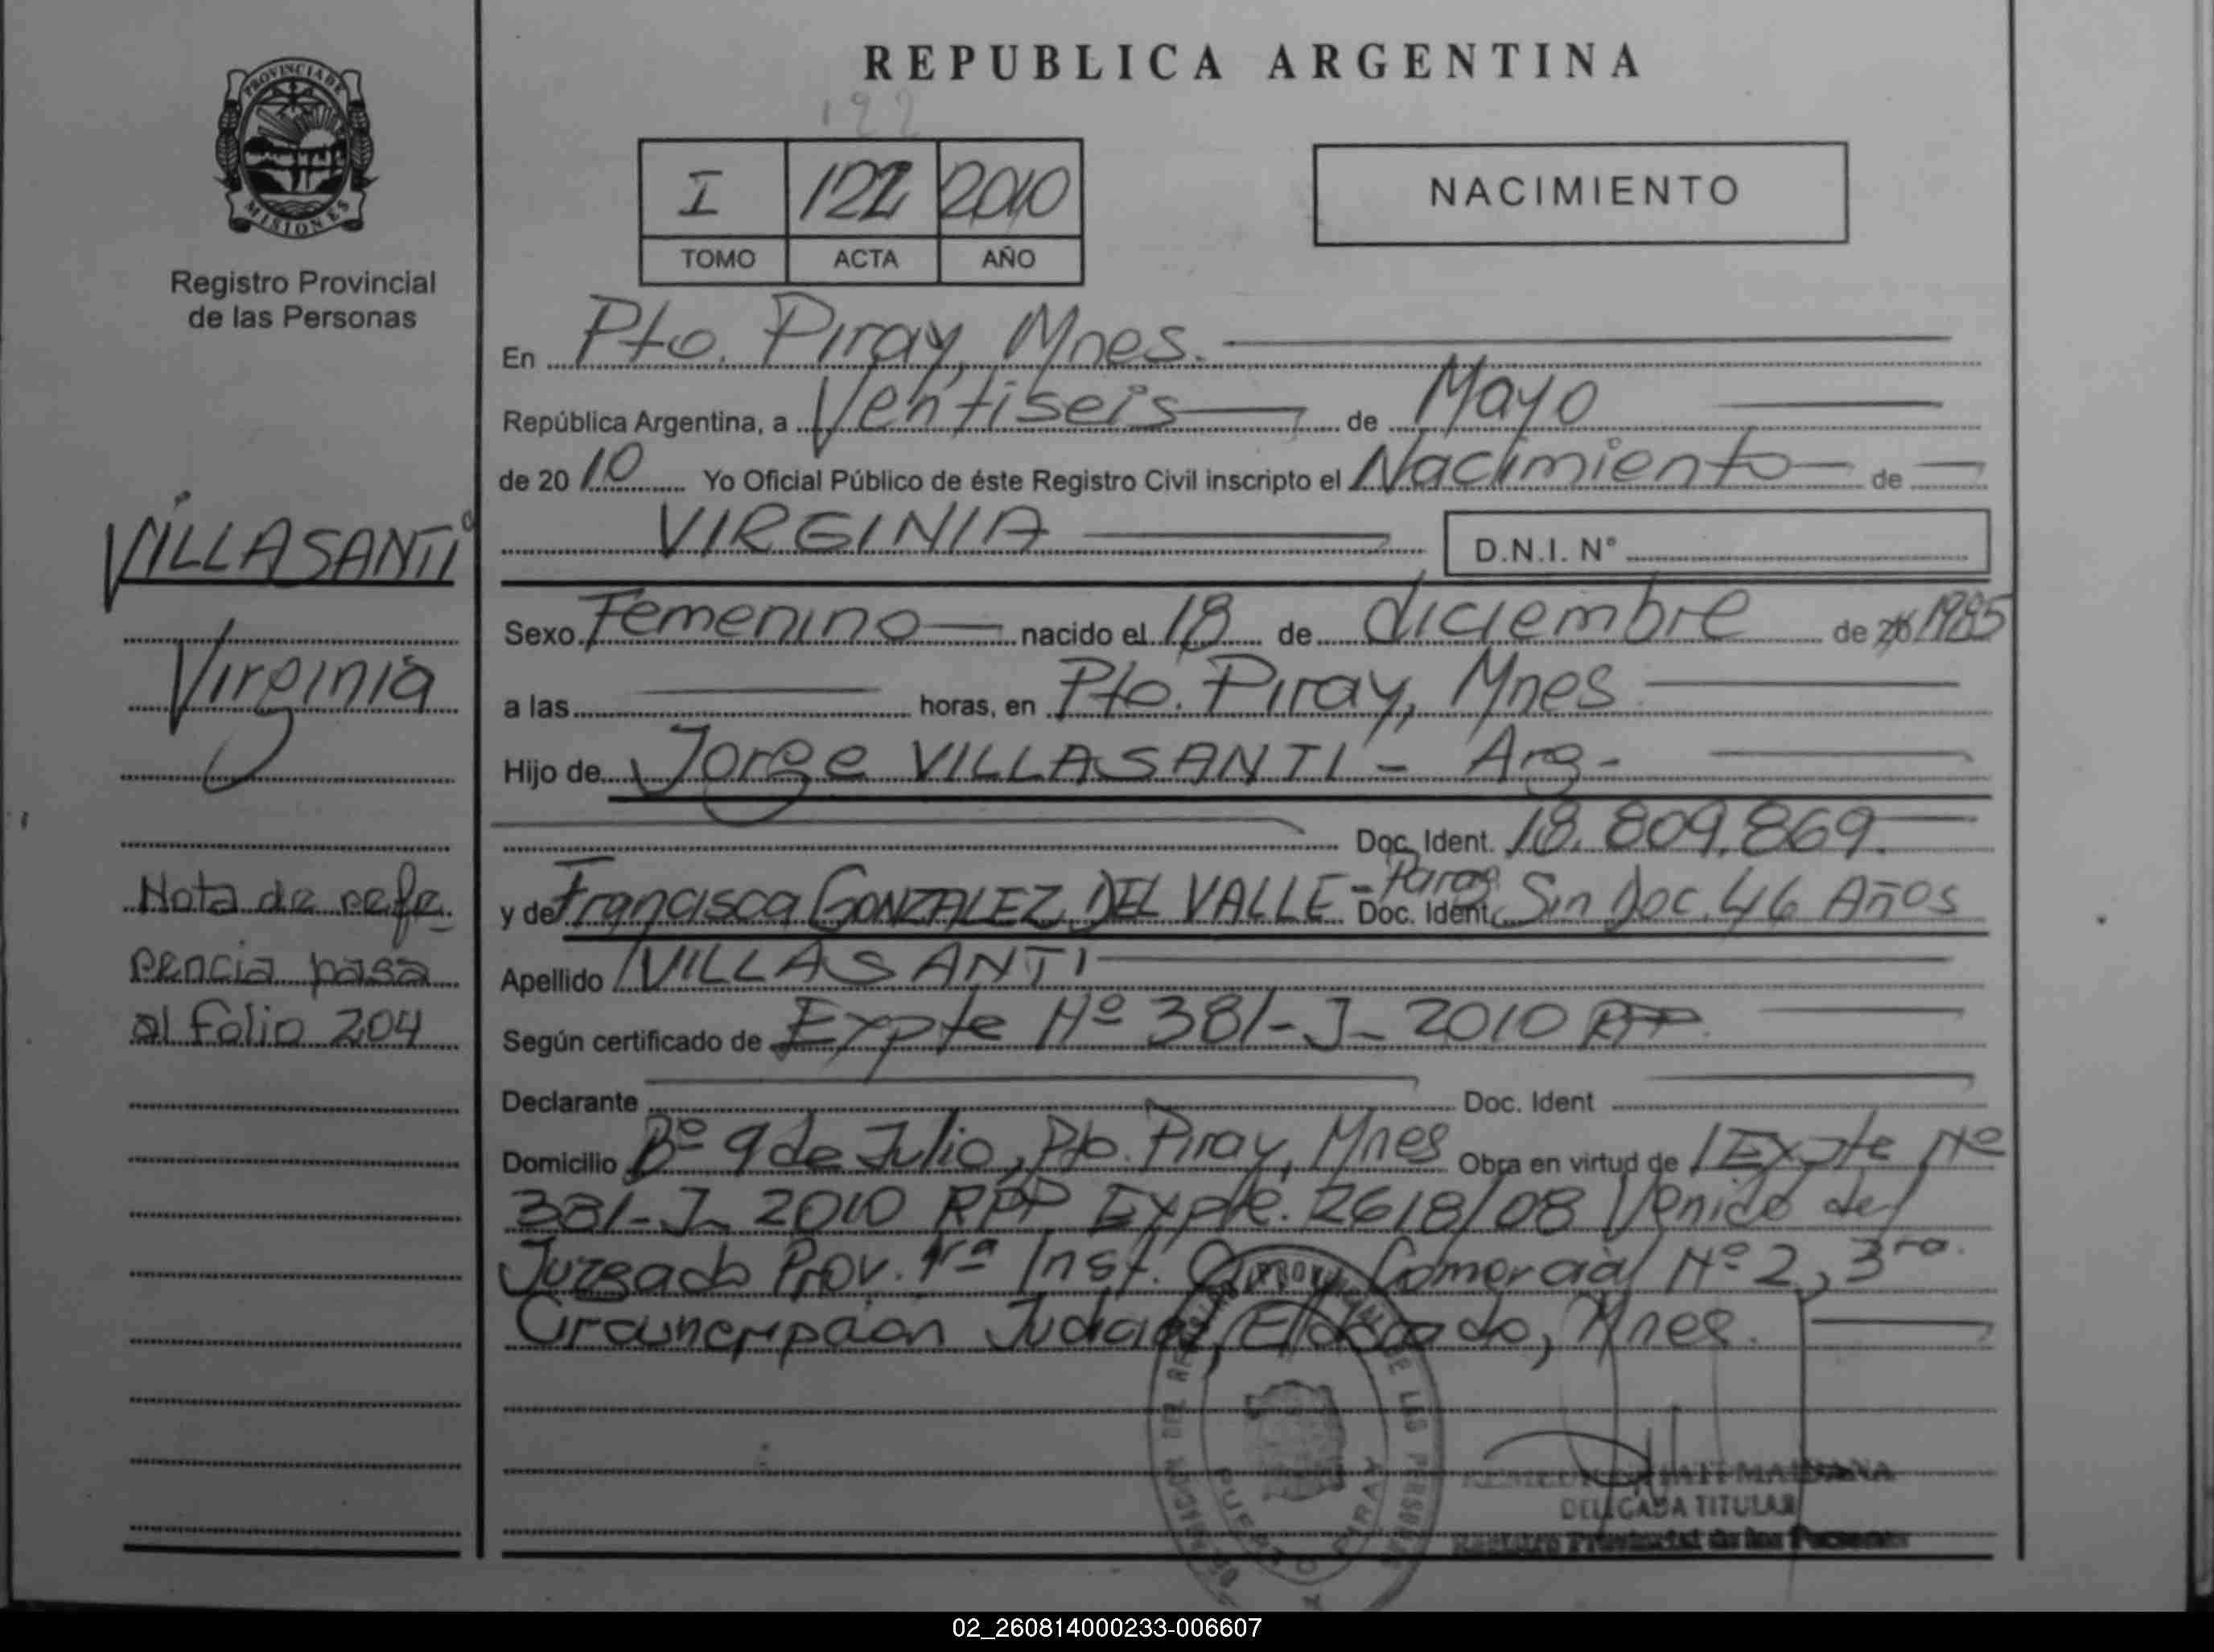 REPUBLICA ARGENTINA
PROVINCIA DE
MISIONES
Registro Provincial
de las Personas
122
I 122 2010
TOMO ACTA AÑO
NACIMIENTO
En Pto. Piray, Mnes.
República Argentina, a Ventiseis de Mayo
de 20 10 Yo Oficial Público de éste Registro Civil inscripto el Nacimiento de
VIRGINIA D.N.I. N°
Sexo Femenino nacido el 18 de diciembre de 1985
a las horas, en Pto. Piray, Mnes
Hijo de Jorge VILLASANTI - Arg-
Doc. Ident. 18.809.869.
y de Francisca GONZALEZ DEL VALLE - Parag. Doc. Ident. Sin Doc. 46 Años
Apellido VILLASANTI
Según certificado de Expte Nº 381-J-2010
Declarante Doc. Ident
Domicilio Bº 9 de Julio, Pto. Piray, Mnes Obra en virtud de Expte Nº
381-J-2010 RPP Expte. 2618/08 Venido del
Juzgado Prov. 1ra Inst. Comercial Nº 2, 3ra.
Circunscripcion Judicial, Eldorado, Mnes.
VILLASANTI
Virginia
Nota de refe
rencia pasa
al folio 204
DE LAS PERSONAS
PUERTO PIRAY
DELEGADA TITULAR
Registro Provincial de las Personas
02_260814000233-006607